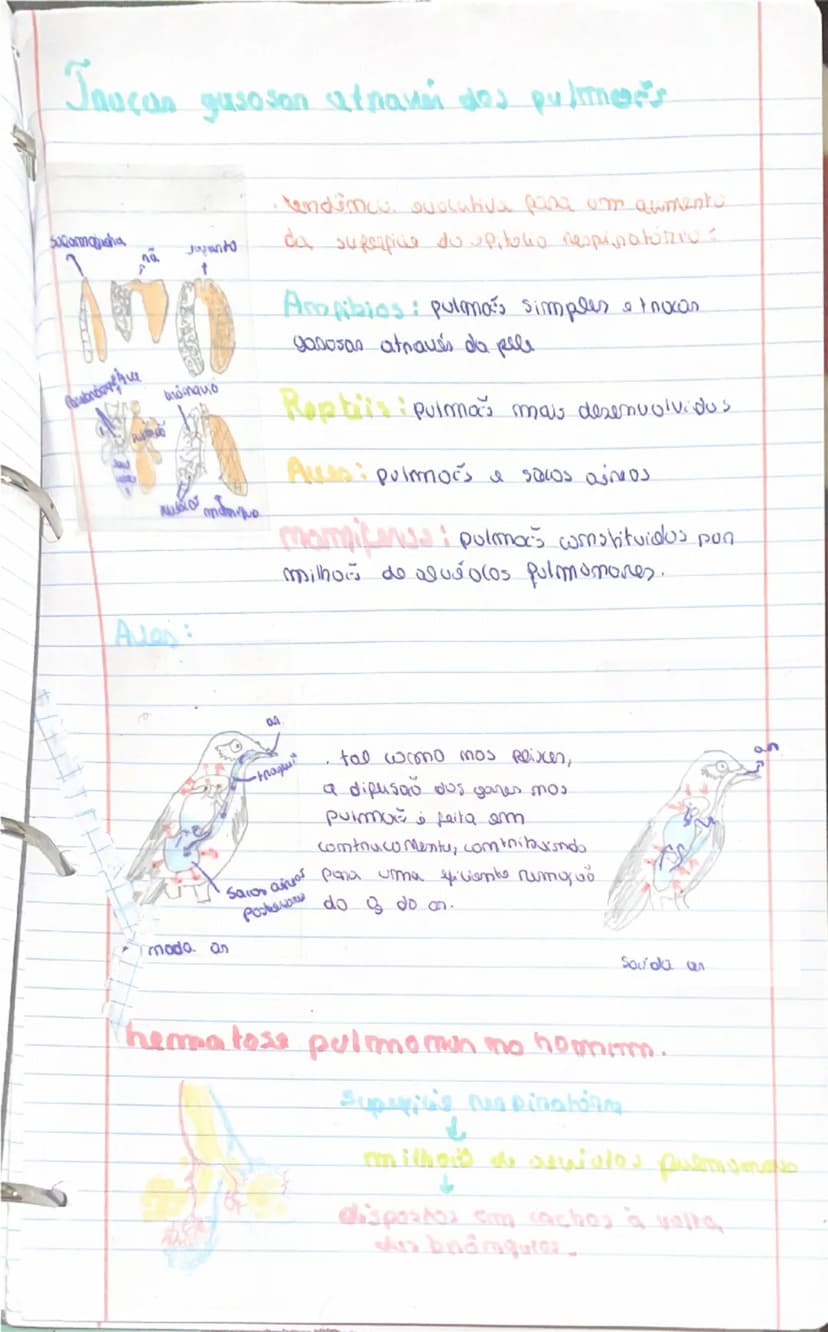 Trocas gasosas através dos pulmões
. tendência evolutiva para um aumento
da superfície do epitelio respiratório:
salamandra
rã
lagarto
Anfibios: pulmões simples e trocas
gasosas através da pele
brônquio
Repteis: pulmões mais desenvolvidos
Aves: pulmões e sacos aéreos
mamiferos: pulmões constituidos por
milhões de alvéolos pulmonares.
Aves:
ar
traqueia
. tal como nos peixes,
a difusão dos gases nos
pulmões é feita em
contracorrente, contribuindo
para uma eficiente remoção
do O₂ do ar.
ar
sacos aéreos
posteriores
entrada ar
Saída ar
hematose pulmonar no homem.
superfície respiratória
↓
milhões de alvéolos pulmonares
↓
dispostos em cachos à volta
dos bronquíolos.